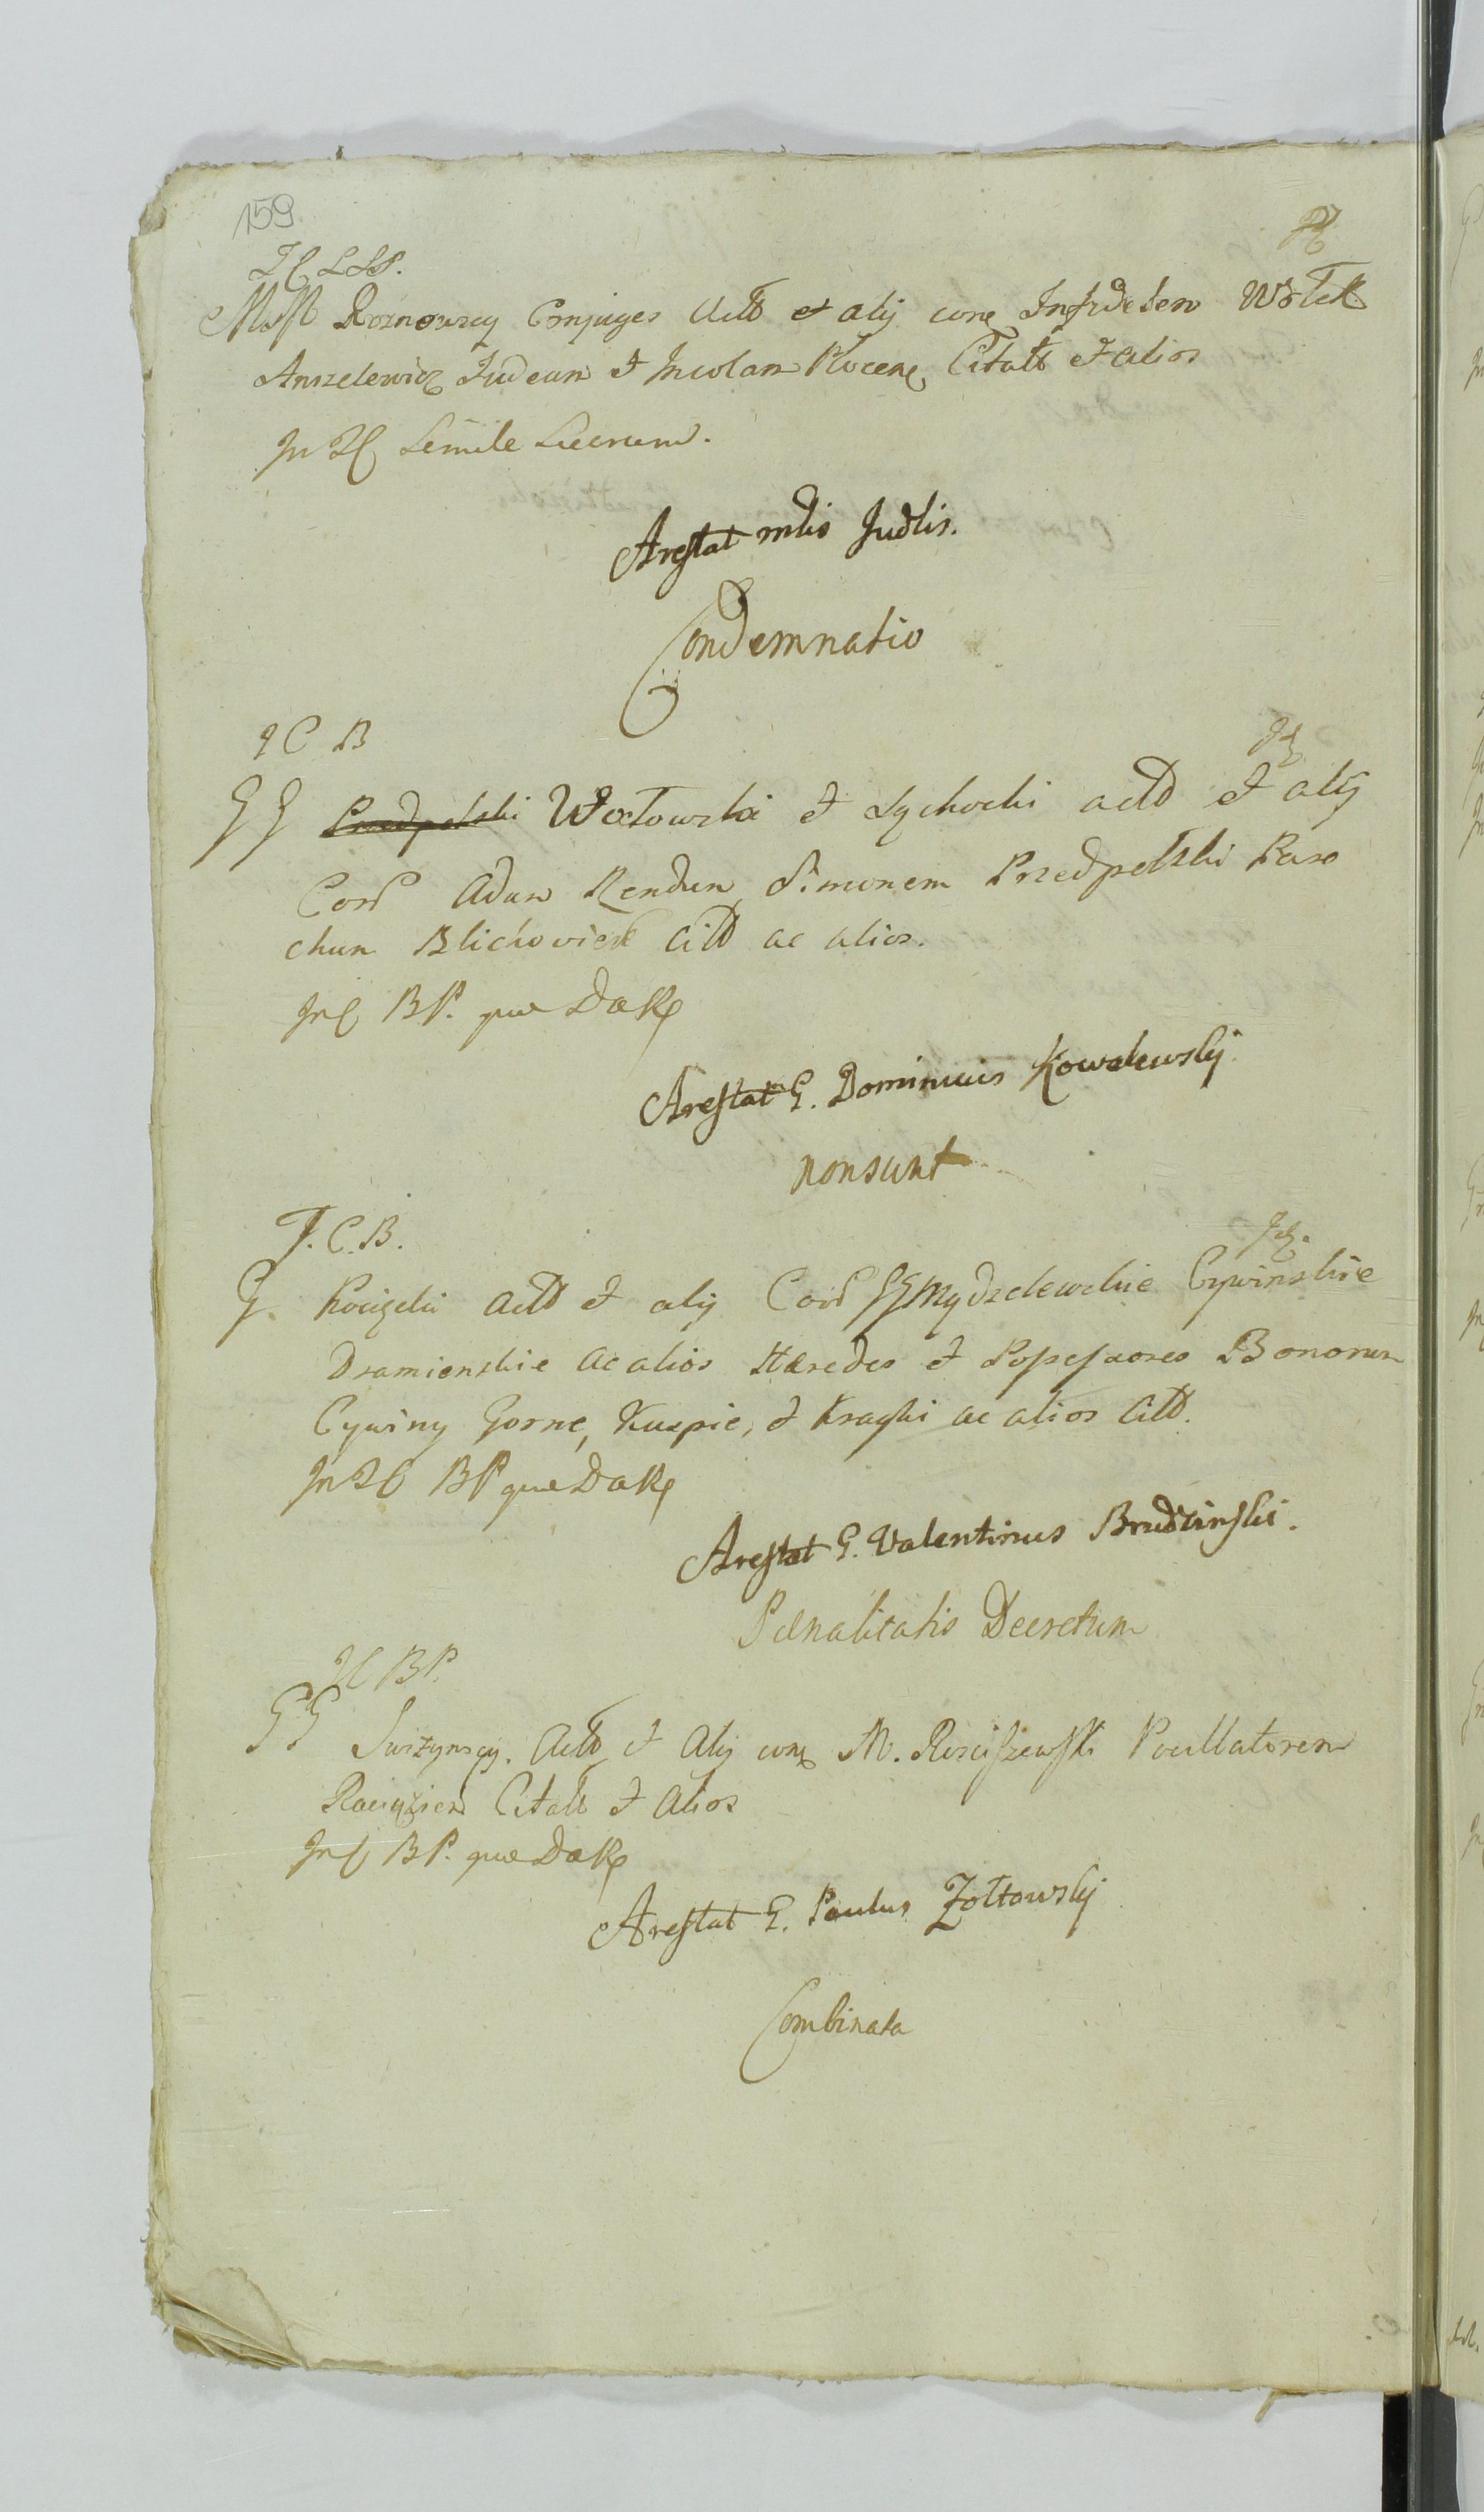 159
Roznowscy Conjuges Actt et alij cone Infidelem Wolek
Anszelewicz Judeum et Incolam Plocen Citatt et alios
In Simile Lucrum.
Arestat mlis Judlis.
Condemnatio
I C B
GG Przedpelski Woxtowski et Lychocki actt et alij
Cor Adum Rendum Simonem Przedpelski Paro
chum Blichoviek Citt ac alios.
BP. quæ Da
Arestat G. Dominicus Kowalewskj
non sunt
J. C. B.
G. actt et alij Cor GG Mydzelewskie Cywinskie
Dramienskie ac alios Hæredes et Possessores Bonorum
Cywiny Gorne, Kuzpie, et Kraski ac alios Citt.
In BP quæ Da
Arestat G. Valentinus Brudzinski.
Pænalitatis Decretum
BP.
GG Suszynscy. Actt et Alij cone M. Rosciszewski Pocillatorem
Raciązien Citatt et Alios
BP. quæ Da
Arestat G. Paulus Zołtowskj
Combinata